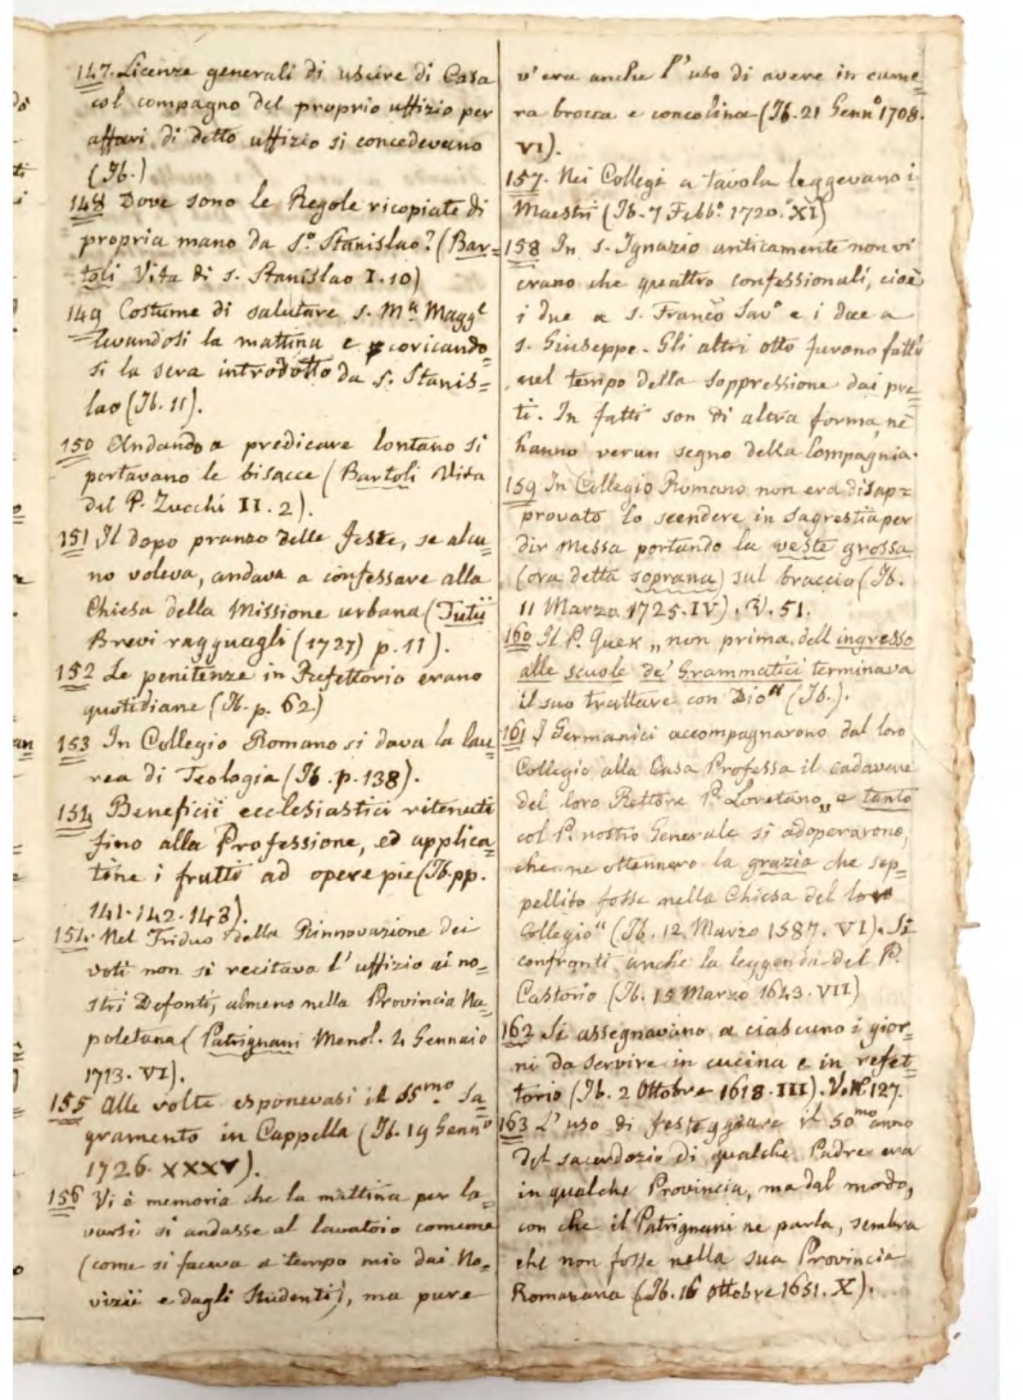 147. Licenze generali di uscire di Casa
col compagno del proprio uffizio per
affari di detto uffizio si concedevano
(Ib.)
148 Dove sono le Regole ricopiate di
propria mano da S.º Stanislao? (Bar=
toli Vita di s. Stanislao I. 10)
149 Costume di salutare s. Mª Maggᵉ
levandosi la mattina e coricando=
si la sera introdotto da S. Stanis=
lao (Ib. 11).
150 Andando a predicare lontano si
portavano le bisacce (Bartoli Vita
del P. Zucchi II. 2).
151 Il dopo pranzo delle feste, se alcu=
no voleva, andava a confessare alla
Chiesa della Missione urbana (Tutii
Brevi ragguagli (1727) p. 11).
152 Le penitenze in Refettorio erano
quotidiane (Ib. p. 62)
153 In Collegio Romano si dava la lau=
rea di Teologia (Ib. p. 138).
154 Beneficii ecclesiastici ritenuti
fino alla Professione, ed applica=
tine i frutti ad opere pie (Ib. pp.
141. 142. 143).
154. Nel Triduo della Rinnovazione dei
voti non si recitava l'uffizio ai no=
stri Defonti, almeno nella Provincia Na=
poletana (Patrignani Menol. 4 Gennaio
1713. VI).
155 Alle volte esponevasi il SSmo. Sa=
gramento in Cappella (Ib. 19 Gennº
1726. XXXV).
156 Vi è memoria che la mattina per la=
varsi si andasse al lavatoio comune
(come si faceva a tempo mio dai No=
vizii e dagli Studenti), ma pure
v'era anche l'uso di avere in came=
ra brocca e concolina (Ib. 21 Gennº 1708.
VI).
157. Nei Collegi a tavola leggevano i
Maestri (Ib. 7 Febbº. 1720. XI)
158 In s. Ignazio anticamente non vi
erano che quattro confessionali, cioè
i due a s. Francº Savº e i due a
s. Giuseppe. Gli altri otto furono fatti
nel tempo della soppressione dai pre=
ti. In fatti son di altra forma, nè
hanno verun segno della Compagnia.
159 In Collegio Romano non era disap=
provato lo scendere in Sagrestia per
dir Messa portando la veste grossa
(ora detta soprana) sul braccio (Ib.
11 Marzo 1725. IV). V. 51.
160 Il P. Quex „ non prima dell'ingresso
alle scuole de' Grammatici terminava
il suo trattare con Dio" (Ib.).
161 I Germanici accompagnarono dal loro
Collegio alla Casa Professa il cadavere
del loro Rettore P. Loretano „ e tanto
col P. nostro Generale si adoperarono,
che ne ottennero la grazia che sep=
pellito fosse nella Chiesa del loro
Collegio" (Ib. 12 Marzo 1587. VI). Si
confronti anche la leggenda del P.
Castorio (Ib. 15 Marzo 1643. VII)
162 Si assegnavano a ciascuno i gior=
ni da servire in cucina e in refet=
torio (Ib. 2 Ottobre 1618. III). V. Nº 127.
163 L'uso di festeggiare il 50mo anno
del sacerdozio di qualche Padre era
in qualche Provincia, ma dal modo,
con che il Patrignani ne parla, sembra
che non fosse nella sua Provincia
Romana (Ib. 16 Ottobre 1651. X).